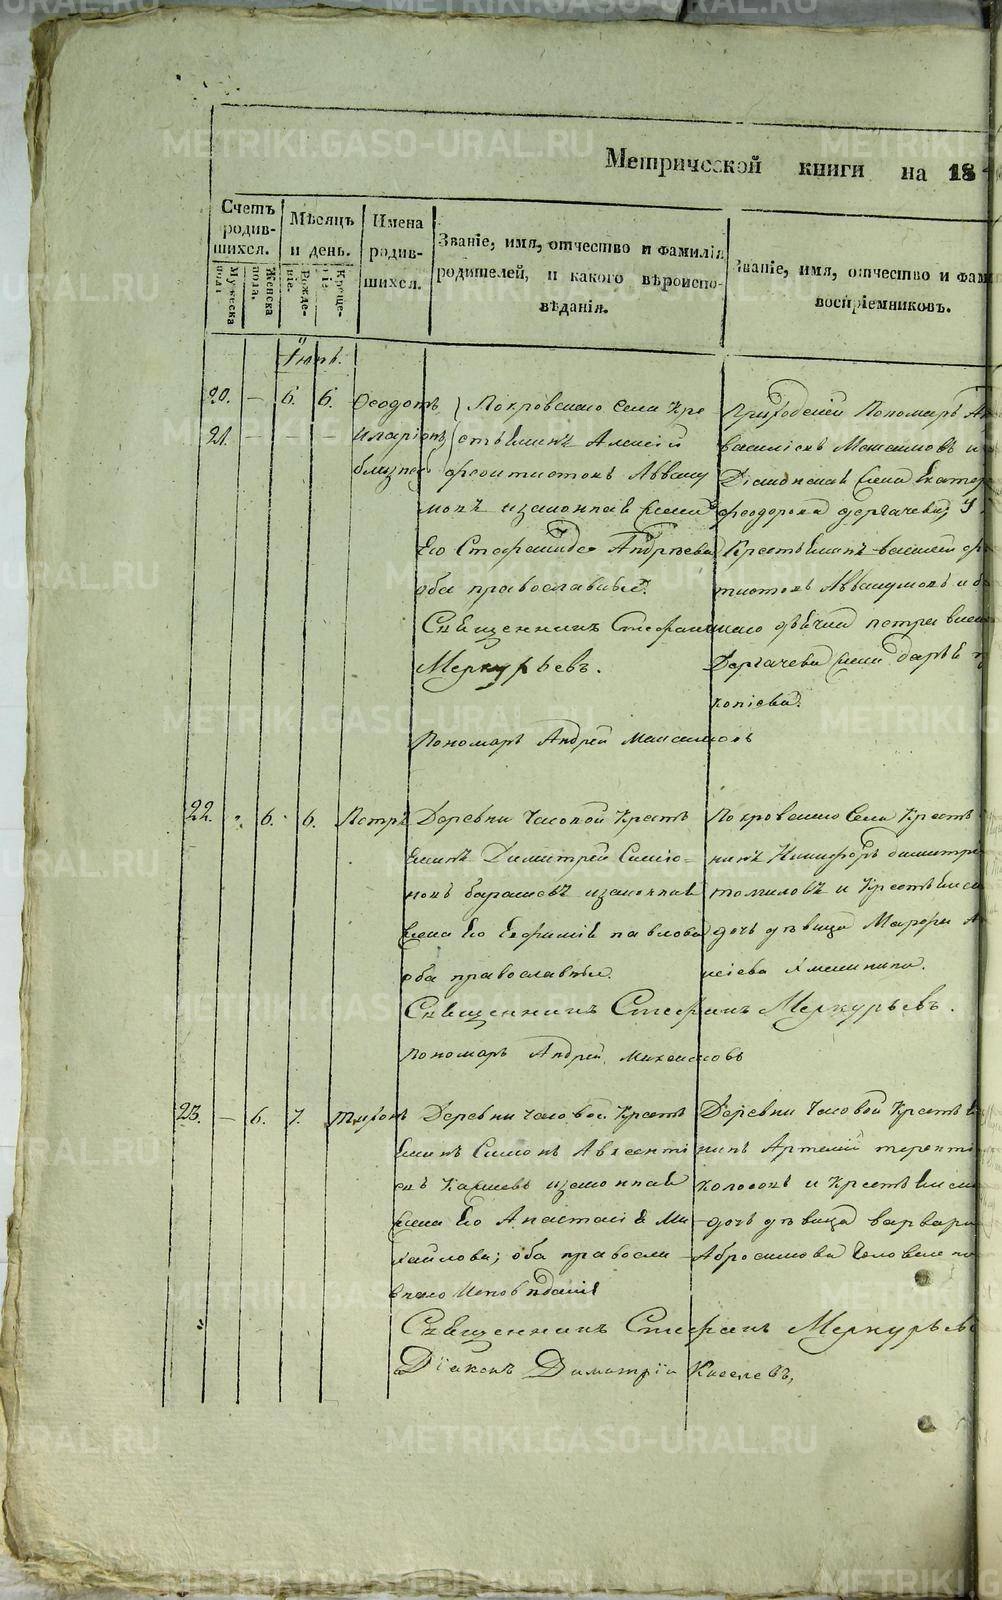 Метрической книги на 18
Счетъ родив-шихся.
Мѣсяцъ и день.
Имена родив-шихся.
Званіе, имя, отчество и фамилія родителей, и какого вѣроиспо-вѣданія.
Званіе, имя, отчество и фами воспріемниковъ.
Мужеска пола.
Женска пола.
Рожде-нія.
Креще-нія.
Іюнь.
20. — 6. 6. Ѳеодотъ
21. — — — Иларіонъ
близнецы
Покровскаго Села Кре
стьянинъ Алексій
Феоктистовъ Авваку
мовъ и законная жена
Его Стефанида Андрѣева
оба православные.
Священникъ Стефанъ
Меркурьевъ.
Пономарь Андрей Максимовъ
Приходскій Пономарь
василіевъ Максимовъ и
Діаконская жена Екатер
феодорова Дергачева,
Крестьянинъ василій фео
тистовъ Аввакумовъ и
петра
Дергачева жена дарья
копіева.
22. 6. 6. Петръ
Деревни Часовой Кресть
янинъ Димитрей Симіо-
новъ барашевъ и законная
жена Его Евфимія павлова
оба православные.
Священникъ Стефанъ Меркурьевъ.
Пономарь Андрей Максимовъ
Покровскаго Села Кресть
нинъ Никифоръ димитрі
томиловъ и Крестьянска
дочь дѣвица Марфа
сіева
23. — 6. 7. Тихонъ
Деревни Часовой Кресть
янинъ Симонъ Авксенті
евъ и законная
жена Его Анастасія Ми
хайлова; оба правосла
внаго Исповѣданія
Священникъ Стефанъ Меркурьевъ
Діаконъ Димитрій Киселевъ,
Деревни Часовой Крестья
нинъ Артемій теренті
колосовъ и Крестьянска
дочь дѣвица варвара
Абросимова
METRIKI.GASO-URAL.RU